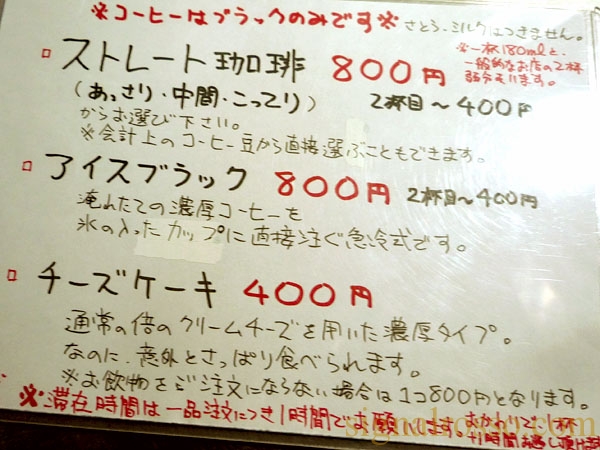 ※コーヒーはブラックのみです※ さとう・ミルクはつきません。
□ ストレート珈琲 800円
※一杯180mlと、
一般的なお店の2杯
弱分もいます。
(あっさり・中間・こってり) 2杯目～400円
からお選び下さい。
※会計上のコーヒー豆から直接選ぶこともできます。
□ アイスブラック 800円 2杯目～400円
淹れたての濃厚コーヒーを
氷の入ったカップに直接注ぐ急冷式です。
□ チーズケーキ 400円
通常の倍のクリームチーズを用いた濃厚タイプ。
なのに、意外とさっぱり食べられます。
※お飲物をご注文にならない場合は1コ800円となります。
※滞在時間は一品注文につき1時間でお願いします。おかわりで1杯
+1時間お過し頂けま